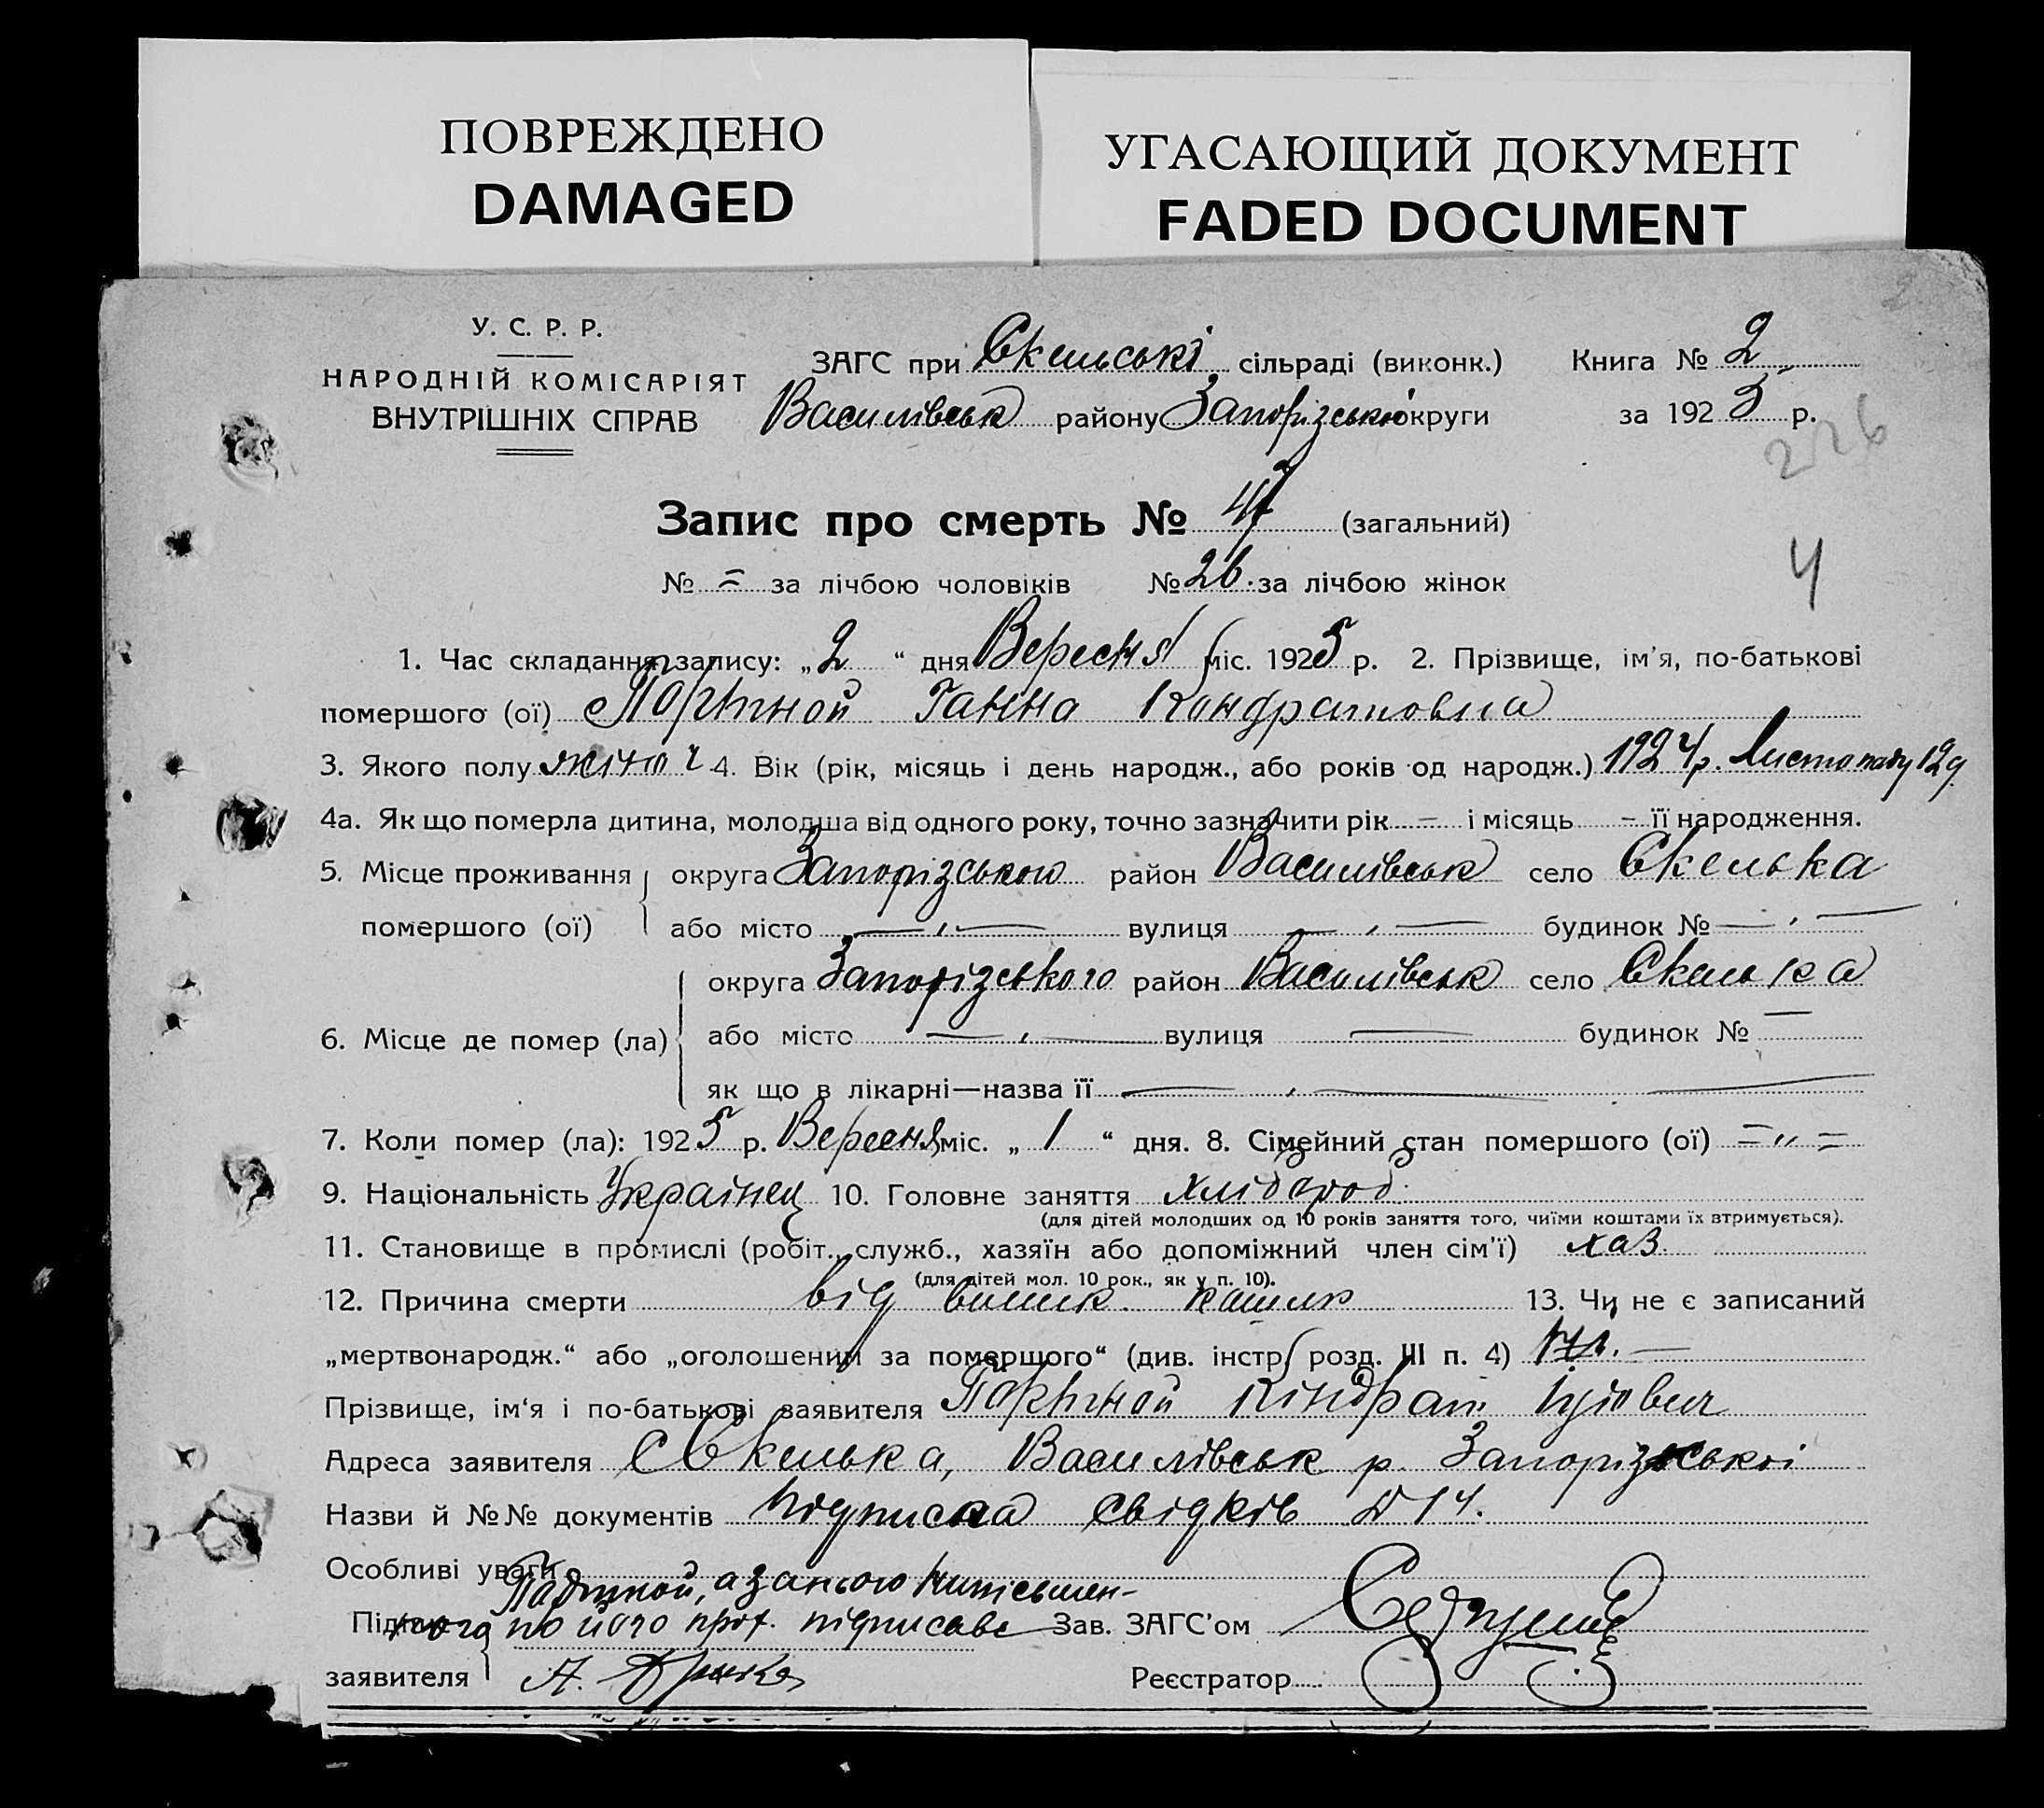 ПОВРЕЖДЕНО
DAMAGED
УГАСАЮЩИЙ ДОКУМЕНТ
FADED DOCUMENT
У. С. Р. Р.
НАРОДНІЙ КОМІСАРІЯТ
ВНУТРІШНІХ СПРАВ
ЗАГС при Скельські сільраді (виконк.) Книга № 2
Василівськ району Запорізської округи за 1925 р.
226
Запис про смерть № 47 (загальний)
4
№ = за лічбою чоловіків № 26. за лічбою жінок
1. Час складання запису: „2“ дня Вересня міс. 1925 р. 2. Прізвище, ім'я, по-батькові
помершого (ої) Портной Ганна Кондратовна
3. Якого полу жіноч 4. Вік (рік, місяць і день народж., або років од народж.) 1924 р. Листопаду 12 д.
4а. Як що померла дитина, молодша від одного року, точно зазначити рік – і місяць – її народження.
5. Місце проживання округа Запорізського район Василівськ село Скелька
помершого (ої) або місто — „ — вулиця — „ — будинок № — „ —
округа Запорізського район Василівськ село Скелька
6. Місце де помер (ла) або місто — „ — вулиця — будинок № —
як що в лікарні—назва її — „ — —
7. Коли помер (ла): 1925 р. Вересня міс. „1“ дня. 8. Сімейний стан помершого (ої) = „ =
9. Національність Українец 10. Головне заняття хлібороб.
(для дітей молодших од 10 років заняття того, чиїми коштами їх втримується).
11. Становище в промислі (робіт., служб., хазяїн або допоміжний член сім'ї) хаз.
(для дітей мол. 10 рок., як у п. 10).
12. Причина смерти від кашлк 13. Чи не є записаний
„мертвонародж.“ або „оголошений за помершого“ (див. інстр. розд. III п. 4) —
Прізвище, ім'я і по-батькові заявителя Портной Кіндрат
Адреса заявителя С Скелька, Василівськ р. Запорізської
Назви й №№ документів підписка свідків № 14.
Особливі уваги
Портной, а за нього неписьмен-
Підпис ного по його прох. підписавс Зав. ЗАГС'ом
заявителя А. Реєстратор